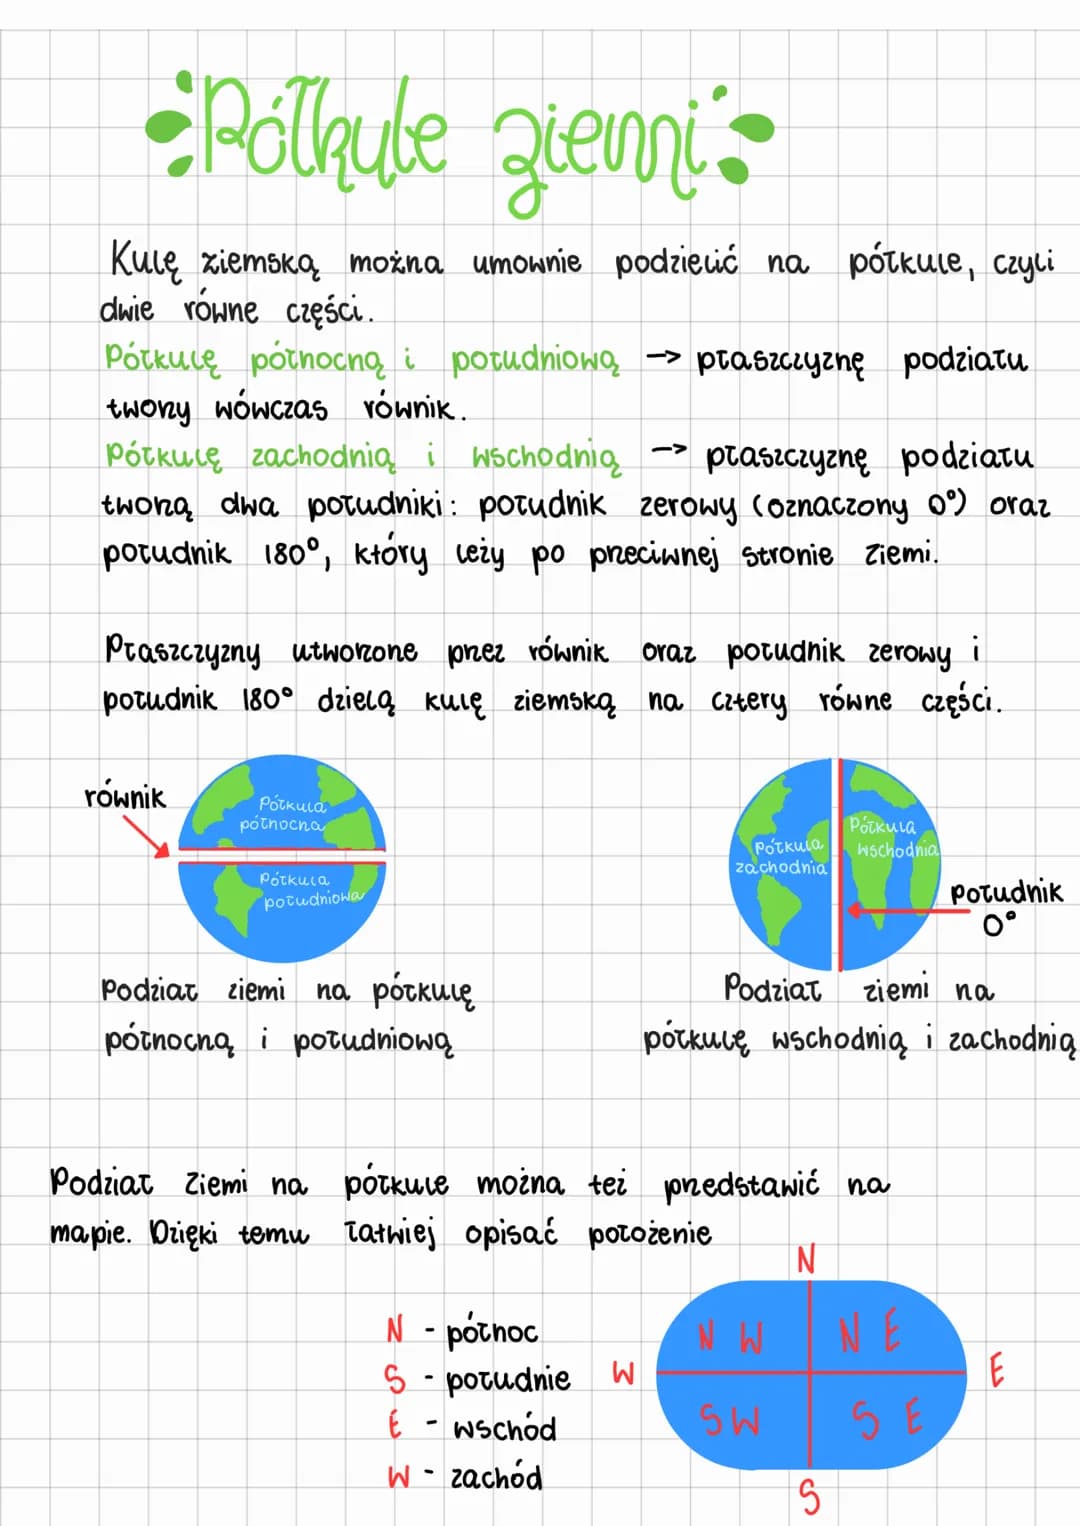 Półkule ziemi
Kulę ziemską można umownie podzielić na półkule, czyli
dwie równe części.
Półkulę północną i południową → płaszczyznę podziału
tworzy wówczas równik.
Półkulę zachodnią i wschodnią → płaszczyznę podziału
tworzą dwa południki: południk zerowy (oznaczony 0°) oraz
południk 180°, który leży po przeciwnej stronie Ziemi.
Płaszczyzny utworzone przez równik oraz południk zerowy i
południk 180° dzielą kulę ziemską na cztery równe części.
równik
Półkula
północna
Półkula
południowa
Półkula
zachodnia
Półkula
wschodnia
południk
0°
Podział ziemi na półkulę
północną i południową
Podział ziemi na
półkulę wschodnią i zachodnią
Podział Ziemi na półkule można też przedstawić na
mapie. Dzięki temu łatwiej opisać położenie
N - północ
S - południe
E - wschód
W - zachód
N
N W
N E
W
E
S W
S E
S